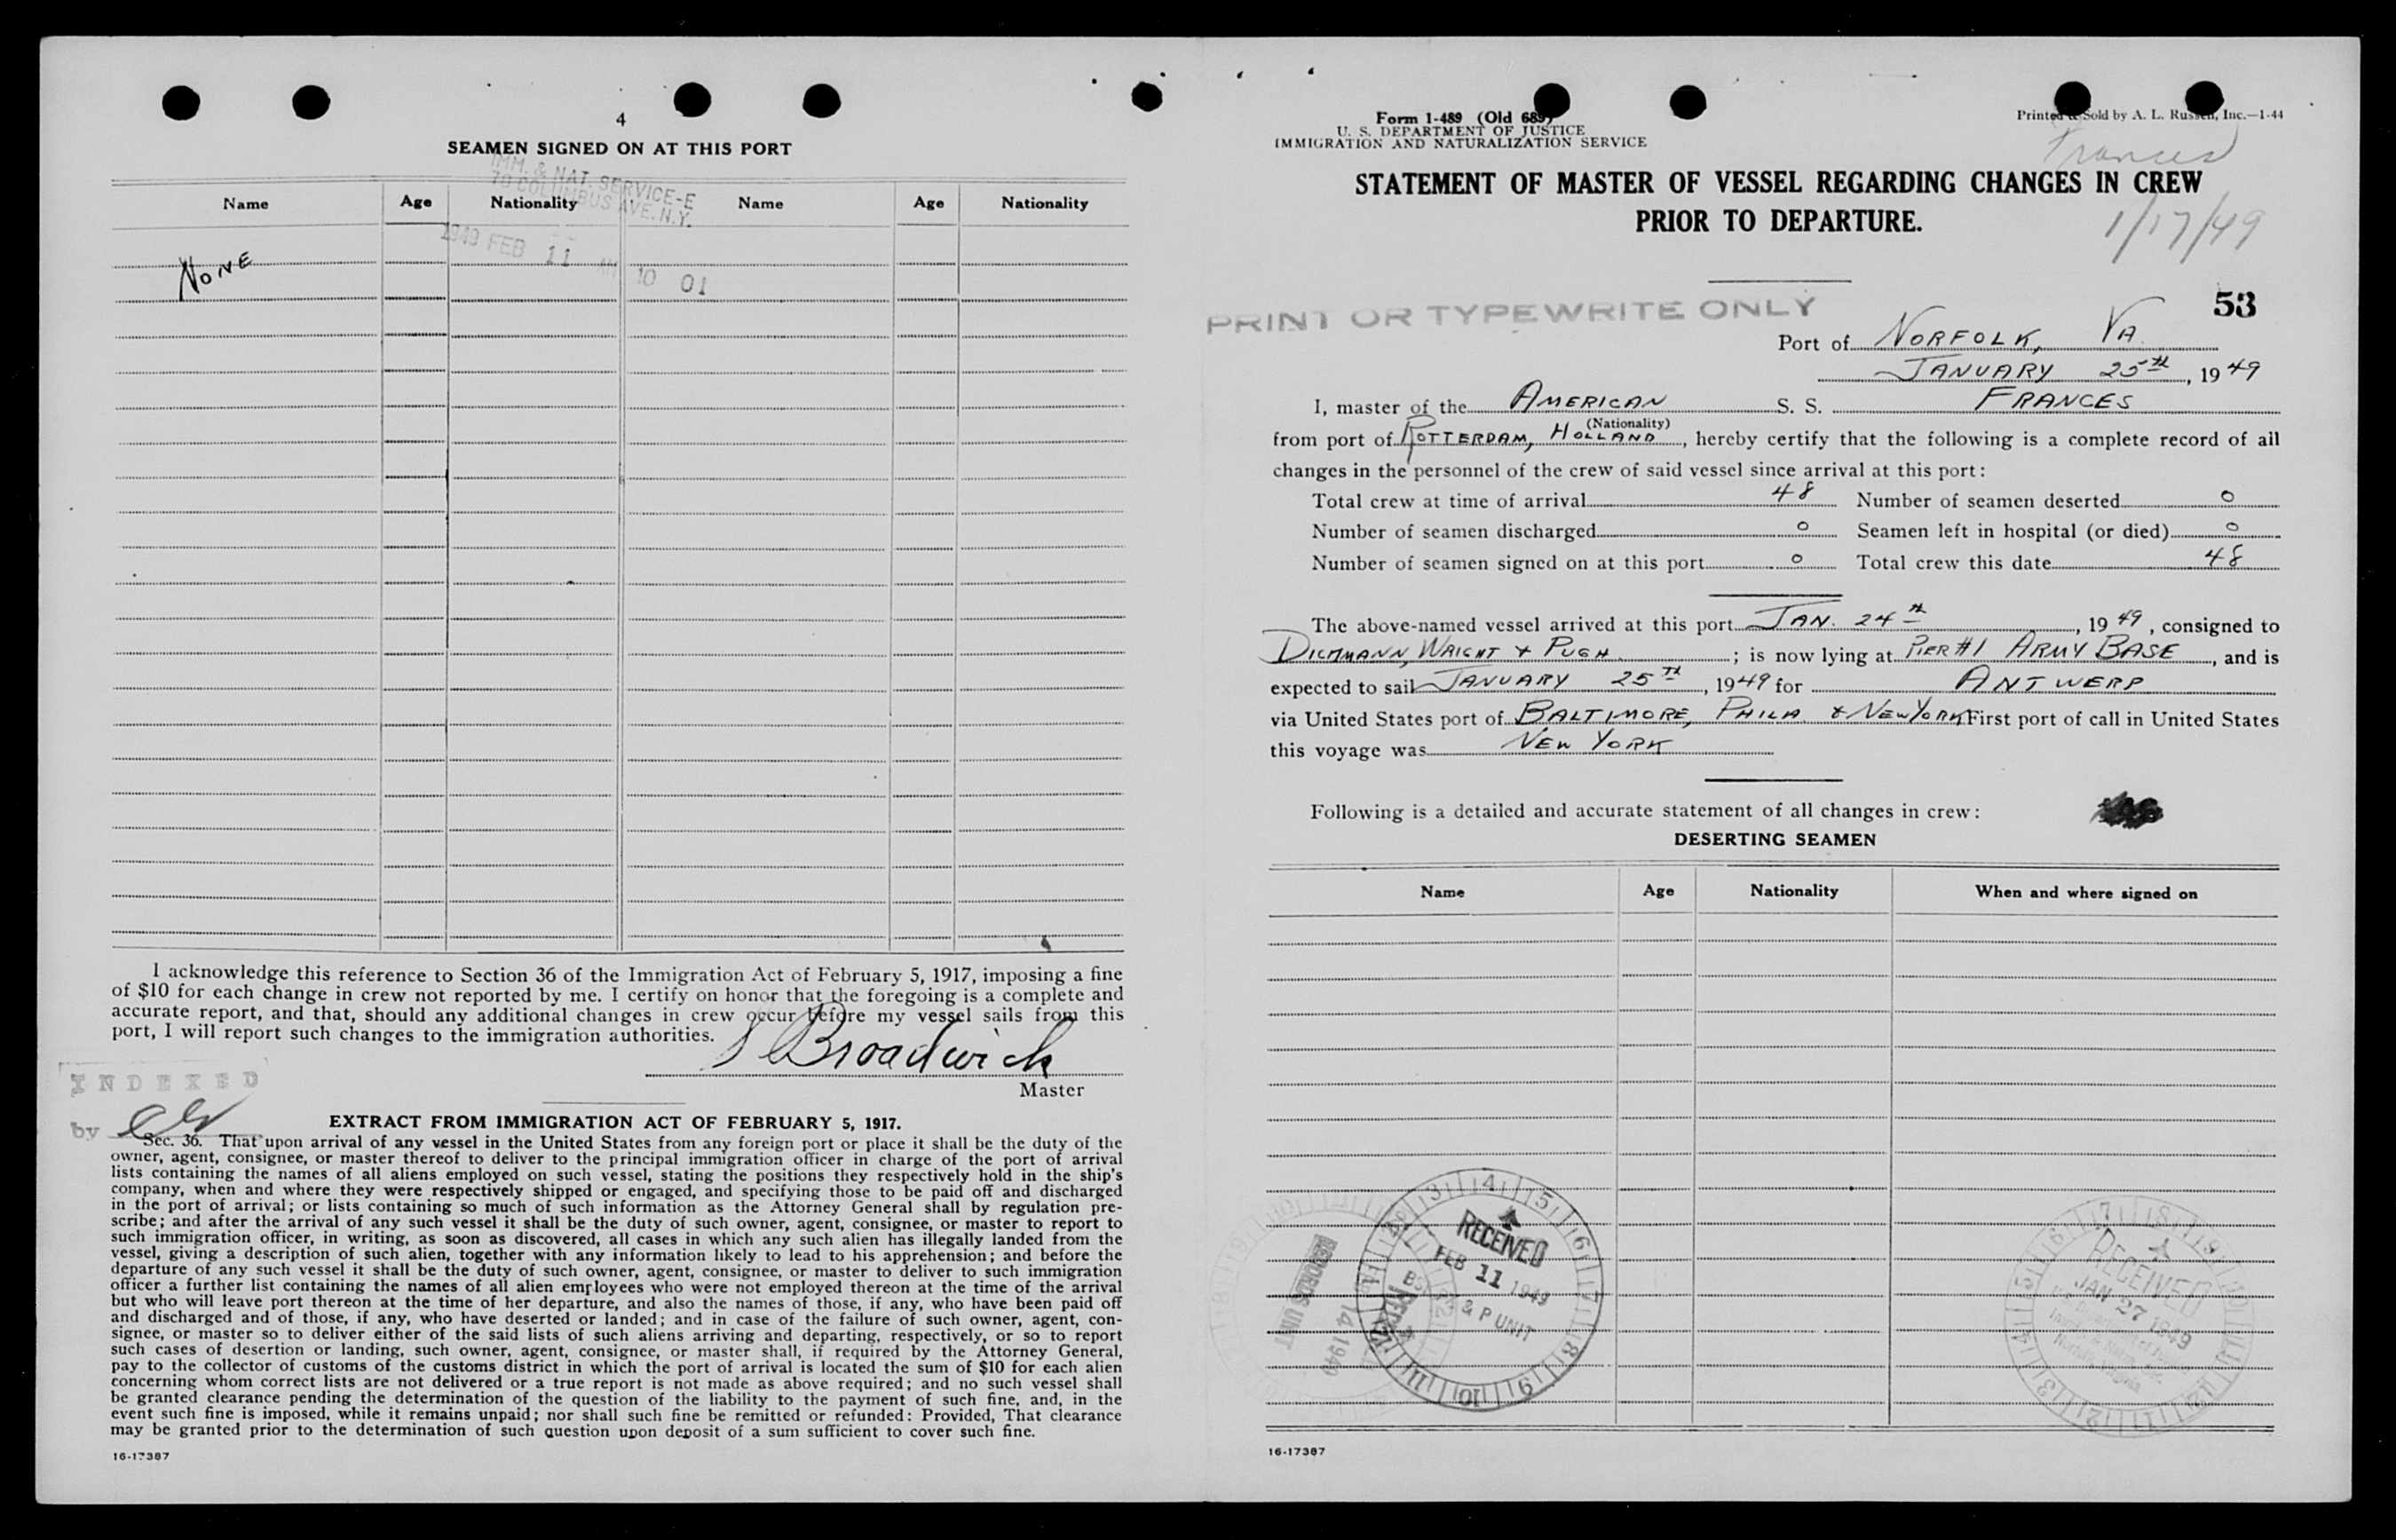 4
SEAMEN SIGNED ON AT THIS PORT
IMM. & NAT. SERVICE-E
70 COLUMBUS AVE. N.Y.
Name Age Nationality Name Age Nationality
1949 FEB 11 AM 10 01
NONE
I acknowledge this reference to Section 36 of the Immigration Act of February 5, 1917, imposing a fine
of $10 for each change in crew not reported by me. I certify on honor that the foregoing is a complete and
accurate report, and that, should any additional changes in crew occur before my vessel sails from this
port, I will report such changes to the immigration authorities.
Broadwick
Master
INDEXED
by
EXTRACT FROM IMMIGRATION ACT OF FEBRUARY 5, 1917.
Sec. 36. That upon arrival of any vessel in the United States from any foreign port or place it shall be the duty of the
owner, agent, consignee, or master thereof to deliver to the principal immigration officer in charge of the port of arrival
lists containing the names of all aliens employed on such vessel, stating the positions they respectively hold in the ship's
company, when and where they were respectively shipped or engaged, and specifying those to be paid off and discharged
in the port of arrival; or lists containing so much of such information as the Attorney General shall by regulation pre-
scribe; and after the arrival of any such vessel it shall be the duty of such owner, agent, consignee, or master to report to
such immigration officer, in writing, as soon as discovered, all cases in which any such alien has illegally landed from the
vessel, giving a description of such alien, together with any information likely to lead to his apprehension; and before the
departure of any such vessel it shall be the duty of such owner, agent, consignee, or master to deliver to such immigration
officer a further list containing the names of all alien employees who were not employed thereon at the time of the arrival
but who will leave port thereon at the time of her departure, and also the names of those, if any, who have been paid off
and discharged and of those, if any, who have deserted or landed; and in case of the failure of such owner, agent, con-
signee, or master so to deliver either of the said lists of such aliens arriving and departing, respectively, or so to report
such cases of desertion or landing, such owner, agent, consignee, or master shall, if required by the Attorney General,
pay to the collector of customs of the customs district in which the port of arrival is located the sum of $10 for each alien
concerning whom correct lists are not delivered or a true report is not made as above required; and no such vessel shall
be granted clearance pending the determination of the question of the liability to the payment of such fine, and, in the
event such fine is imposed, while it remains unpaid; nor shall such fine be remitted or refunded: Provided, That clearance
may be granted prior to the determination of such question upon deposit of a sum sufficient to cover such fine.
16-17387
Form I-489 (Old 689)
U. S. DEPARTMENT OF JUSTICE
IMMIGRATION AND NATURALIZATION SERVICE
Printed & Sold by A. L. Russell, Inc.—1-44
Frances
STATEMENT OF MASTER OF VESSEL REGARDING CHANGES IN CREW
PRIOR TO DEPARTURE.
1/17/49
53
PRINT OR TYPEWRITE ONLY
Port of NORFOLK, VA.
JANUARY 25th, 1949
I, master of the AMERICAN S. S. FRANCES
(Nationality)
from port of ROTTERDAM, HOLLAND, hereby certify that the following is a complete record of all
changes in the personnel of the crew of said vessel since arrival at this port:
Total crew at time of arrival 48 Number of seamen deserted 0
Number of seamen discharged 0 Seamen left in hospital (or died) 0
Number of seamen signed on at this port 0 Total crew this date 48
The above-named vessel arrived at this port JAN. 24th, 1949, consigned to
DICHMANN, WRIGHT & PUGH; is now lying at PIER #1 ARMY BASE, and is
expected to sail JANUARY 25TH, 1949 for ANTWERP
via United States port of BALTIMORE, PHILA. & NEW YORK First port of call in United States
this voyage was NEW YORK
Following is a detailed and accurate statement of all changes in crew:
DESERTING SEAMEN
Name Age Nationality When and where signed on
RECEIVED
FEB 11 1949
& P UNIT
RECORDS UNIT
14 1949
RECEIVED
JAN 27 1949
16-17387